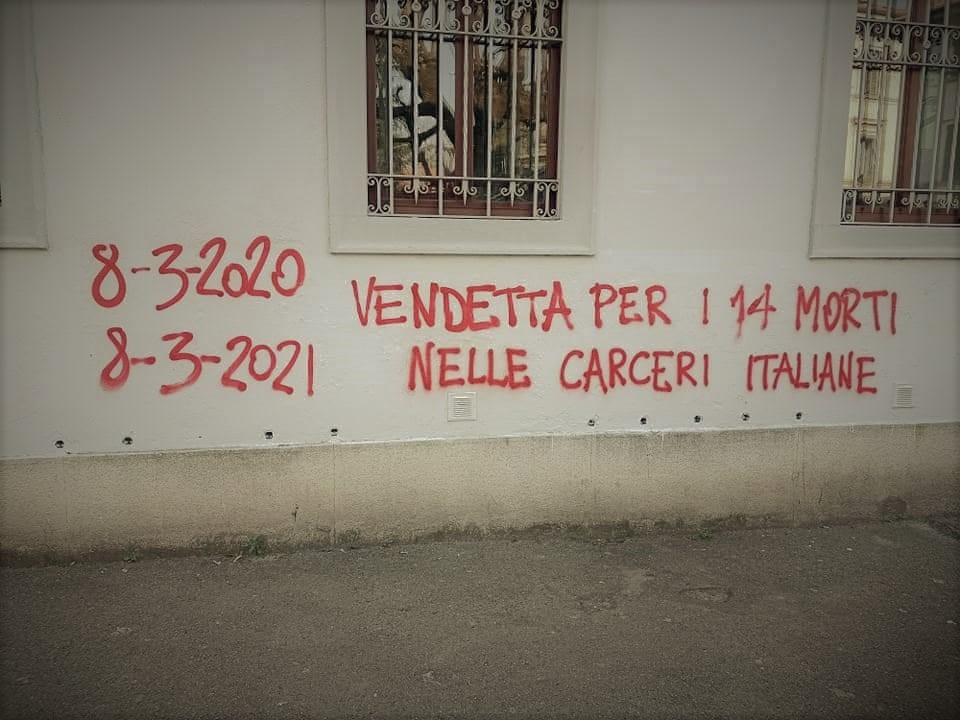 8-3-2020
8-3-2021
VENDETTA PER I 14 MORTI
NELLE CARCERI ITALIANE